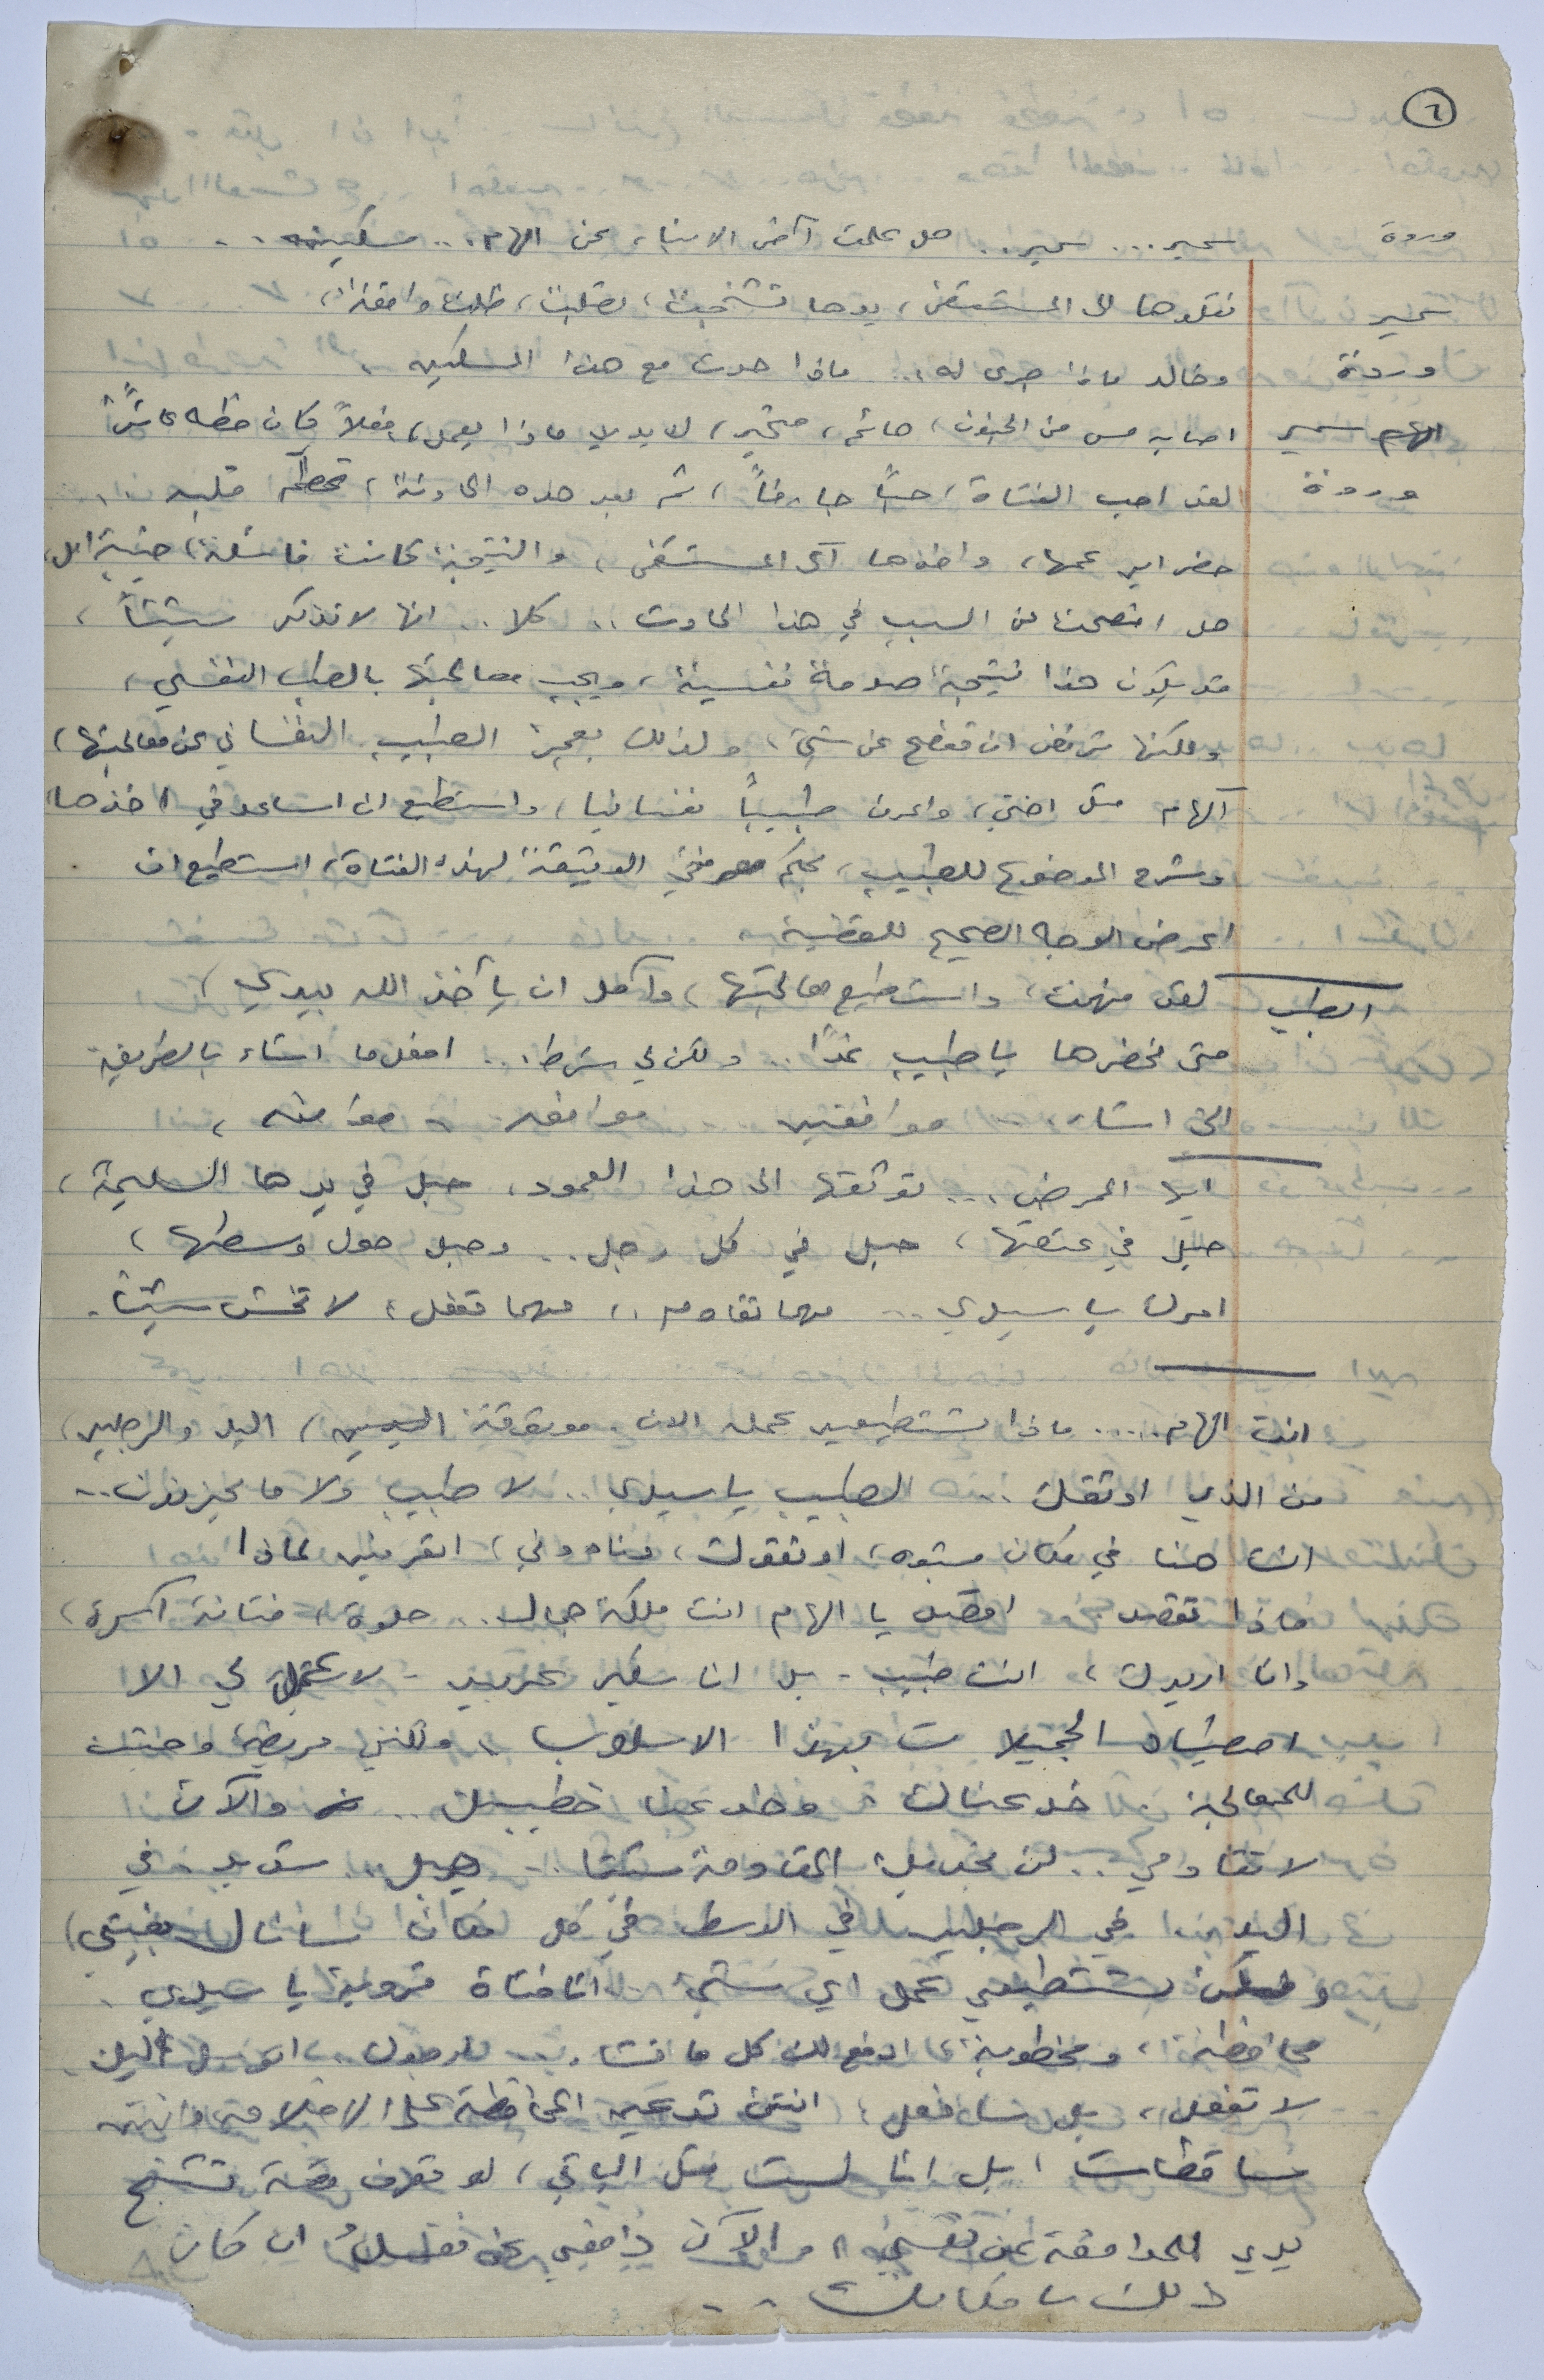 ٦
وردة سمير... سمير.. هل علمت آخر الانباء عن الهام... مسكينة..
سمير نقلوها الى المستشفى، يدها تشنجت، تصلبت، ظلت واقفة،
وردة وخالد ماذا جرى له... ماذا حدث مع هذا المسكين،
سمير اصابه مس من الجنون، هائم، متحير، لا يدري ماذا يعمل، فعلاً كان حظه عاثراً
وردة لقد احب الفتاة، حباً جارفاً، ثم بعد هذه الحادثة، تحطم قلبه..
حضر ابن عمها، واخذها الى المستشفى، والنتيجة كانت فاشلة، خيبة امل،
هل افصحت عن السبب في هذا الحادث.. كلا.. انها لا تذكر شيئاً،
قد يكون هذا نتيجة صدمة نفسية، ويجب معالجتها بالطب النفسي،
ولكنها ترفض ان تفصح عن شيء، ولذلك يعجز الطبيب النفساني عن معالجتها،
الهام مثل اختي، واعرف طبيباً نفسانيا، واستطيع ان اساعد في اخذها
وشرح الموضوع للطبيب، بحكم معرفتي الوثيقة لهذه الفتاة، استطيع ان
اعرض الوجه الصحيح للقضية
الطبيب لقد فهمت، واستطيع معالجتها، وآمل ان يأخذ الله بيدي،
متى نحضرها يا طبيب غداً.. ولكن لي شرط... افعل ما اشاء بالطريقة
التي اشاء، موافقين موافق، موافقه،
ايها الممرض... نوثقها الى هذا العمود، حبل في يدها السليمة،
حبل في عنقها، حبل في كل رجل.. وحبل حول وسطها،
امرك يا سيدي... مهما تقاوم، مهما تفعل، لا تخش شيئاً.
انت الهام.... ماذا تستطيعين عمله الان. موثوقة اليدين، اليد والرجلين،
من الذي اوثقك... الطبيب يا سيدي.. لا طبيب ولا ما يحزنون..
انت هنا في مكان مشبوه، اوثقوك، وناموني، اتعرفين لماذا
ماذا تقصد اقصد يا الهام انت ملكة جمال.. حلوة، فتانة آسرة،
وانا اريدك، انت طبيب - بل انا سكير عربيد - لا عمل لي الا
اصطياد الجميلات بهذا الاسلوب، ولكنني مريضة وجئت
للمعالجة خدعناك وخدعنا خطيبك.. والآن
لا تقاومي.. لن تجديك المقاومة شيئا.. حبل.. شديد في
اليدين في الرجلين في الوسط، في كل مكان سأنال بغيتي،
تستطيعي عمل اي شيء انا فتاة قروية يا سيدي،
محافظة، ومخطوبة، ادفع لك كل ما تشاء،.. اتوسل اليك
لا تفعل، بل سأفعل، انتن تدعين المحافظة على الاخلاق وانتن
ساقطات، بل انا لست مثل الباقي، لو تعرف قصة تشنج
يدي للمدافعة عن نفسي، والآن دافعي عن نفسك ان كان
ذلك بامكانك..